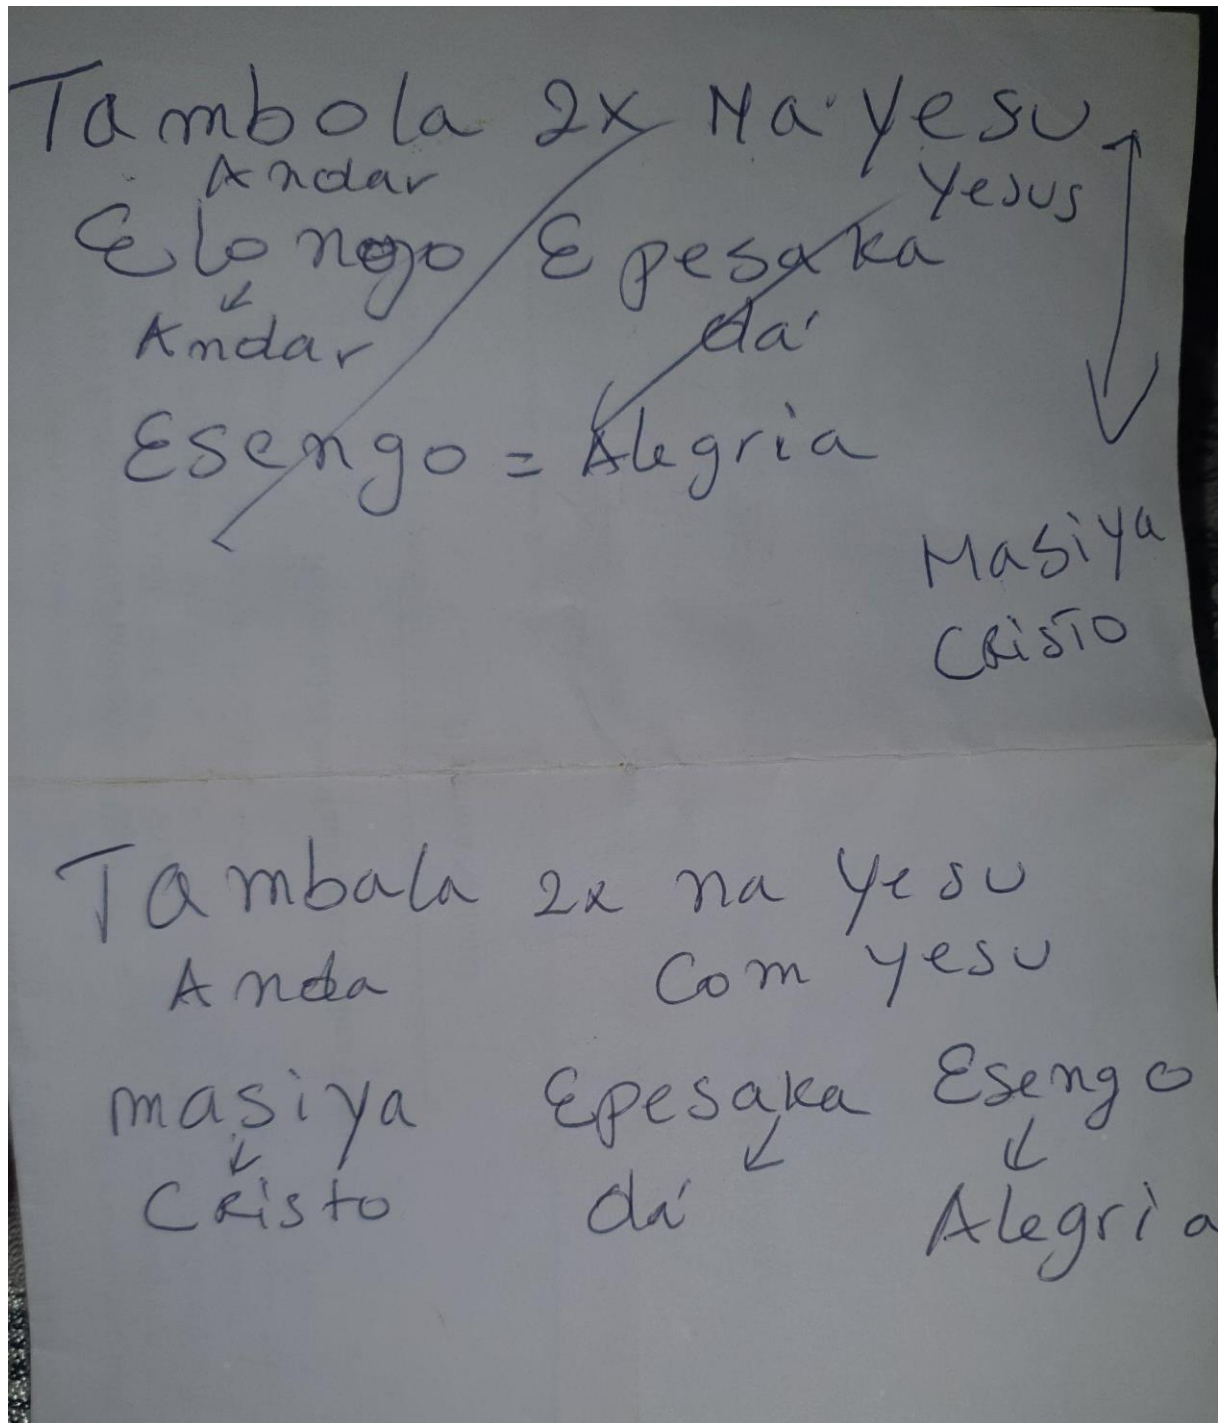 Tambola 2x Na Yesu
Andar Yesus
Elongo Epesaka
Andar dá
Esengo = Alegria
Masiya
CRISTO
Tambala 2x na Yesu
Anda Com yesu
masiya Epesaka Esengo
CRisto dá Alegria